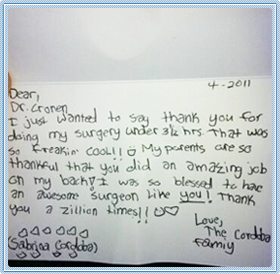 4-2011
Dear,
Dr. Cronen
I just wanted to say thank you for
doing my surgery under 3½ hrs. That was
so freakin cool!! My parents are so
thankful that you did an amazing job
on my back! I was so blessed to hae
an awesome surgeon like you! Thank
you a zillion times!!
Love,
The Cordoba
Family
(Sabrina Cordoba)